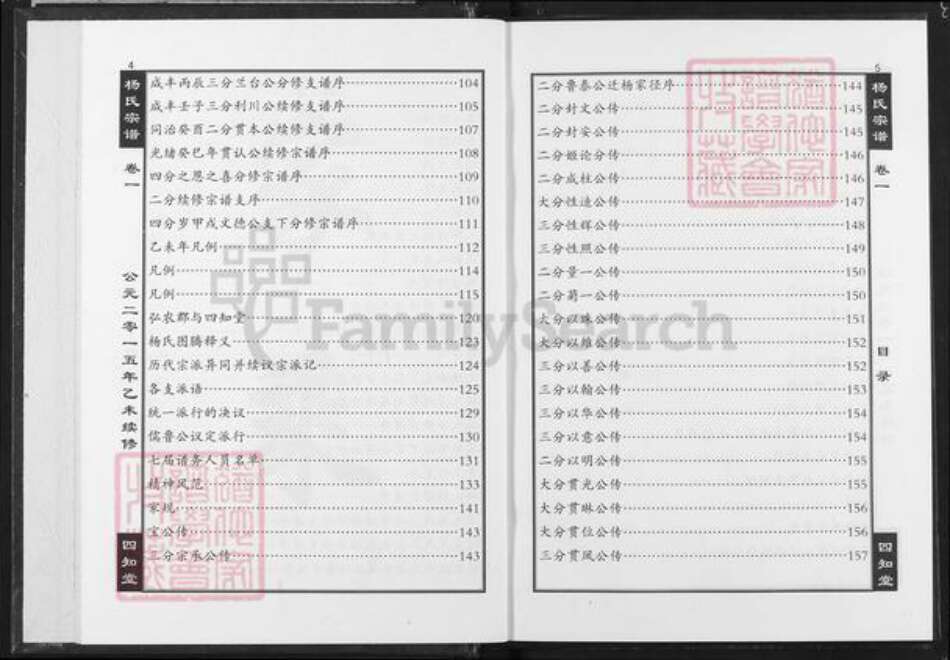 4
杨氏宗谱
卷一
公元二零一五年乙未续修
四知堂
咸丰丙辰三分兰台公分修支谱序……104
咸丰壬子三分利川公续修支谱序……105
同治癸酉二分贯本公续修支谱序……107
光绪癸巳年贯认公续修宗谱序……108
四分之恩之喜分修宗谱序……109
二分续修宗谱支序……110
四分岁甲戌文德公支下分修宗谱序……111
乙未年凡例……112
凡例……114
凡例……115
弘农郡与四知堂……120
杨氏图腾释义……123
历代宗派异同并续议宗派记……124
各支派语……125
统一派行的决议……129
儒鲁公议定派行……130
七届谱务人员名单……131
精神风范……133
家规……141
宝公传……143
三分宗丞公传……143
5
杨氏宗谱
卷一
目录
四知堂
二分鲁泰公迁杨家径序……144
二分封文公传……145
二分封安公传……145
二分姬论分传……146
二分成柱公传……146
大分性迪公传……147
三分性辉公传……148
三分性照公传……149
二分量一公传……150
二分菊一公传……150
大分以珠公传……151
大分以维公传……152
三分以善公传……152
三分以翰公传……153
三分以华公传……154
三分以意公传……154
二分以明公传……155
大分贯光公传……155
大分贯琳公传……156
大分贯位公传……156
三分贯风公传……157
FamilySearch